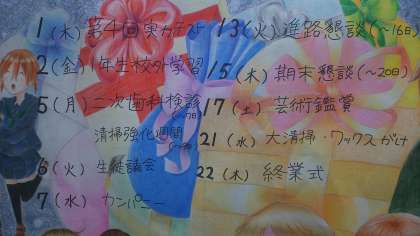 1(木)第4回実力テスト
2(金)1年生校外学習
5(月)二次歯科検診
清掃強化週間
6(火)生徒議会
7(水)カンパニー
13(火)進路懇談(〜16日)
15(木)期末懇談(〜20日)
17(土)芸術鑑賞
21(水)大清掃・ワックスがけ
22(木)終業式